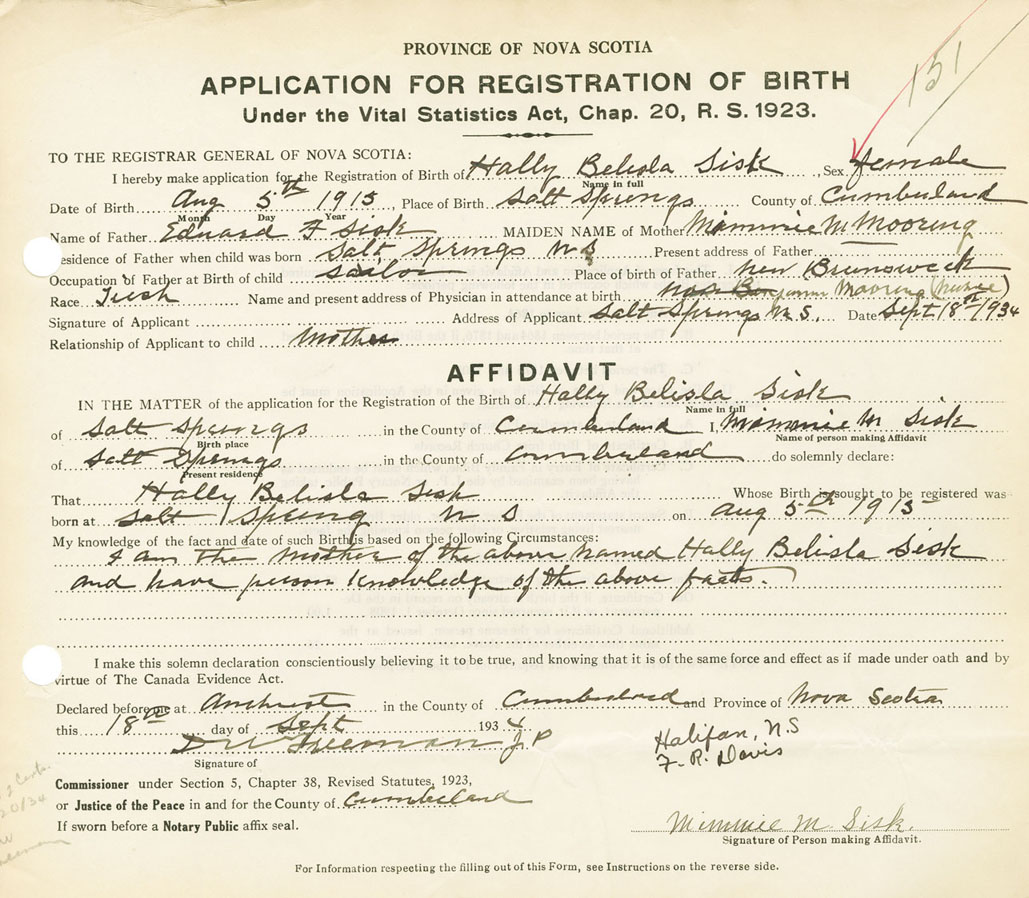 151
PROVINCE OF NOVA SCOTIA
APPLICATION FOR REGISTRATION OF BIRTH
Under the Vital Statistics Act, Chap. 20, R. S. 1923.
TO THE REGISTRAR GENERAL OF NOVA SCOTIA:
I hereby make application for the Registration of Birth of Hally Belisla Sisk Sex female
Name in full
Date of Birth Aug 5th 1915, Place of Birth Salt Springs County of Cumberland
Month Day Year
Name of Father Edward F Sisk MAIDEN NAME of Mother Mimmie M Mooring
Residence of Father when child was born Salt Springs N S Present address of Father
Occupation of Father at Birth of child sailor Place of birth of Father New Brunswick
Race Irish Name and present address of Physician in attendance at birth Mooring (Nurse)
Signature of Applicant Address of Applicant Salt Springs N.S. Date Sept 18th 1934
Relationship of Applicant to child Mother
AFFIDAVIT
IN THE MATTER of the application for the Registration of the Birth of Hally Belisla Sisk
Name in full
of Salt Springs in the County of Cumberland I, Mimmie M Sisk
Birth place Name of person making Affidavit
of Salt Springs in the County of Cumberland do solemnly declare:
Present residence
That Hally Belisla Sisk Whose Birth is sought to be registered was
born at Salt Spring N S on Aug 5th 1915
My knowledge of the fact and date of such Birth is based on the following Circumstances:
I am the mother of the above named Hally Belisla Sisk
and have person knowledge of the above facts.
I make this solemn declaration conscientiously believing it to be true, and knowing that it is of the same force and effect as if made under oath and by
virtue of The Canada Evidence Act.
Declared before me at Amherst in the County of Cumberland and Province of Nova Scotia
this 18th day of Sept 1934
D W Freeman J.P
Halifax, N.S
F. R. Davis
Signature of
Commissioner under Section 5, Chapter 38, Revised Statutes, 1923,
or Justice of the Peace in and for the County of Cumberland
If sworn before a Notary Public affix seal.
Mimmie M. Sisk.
Signature of Person making Affidavit.
For Information respecting the filling out of this Form, see Instructions on the reverse side.